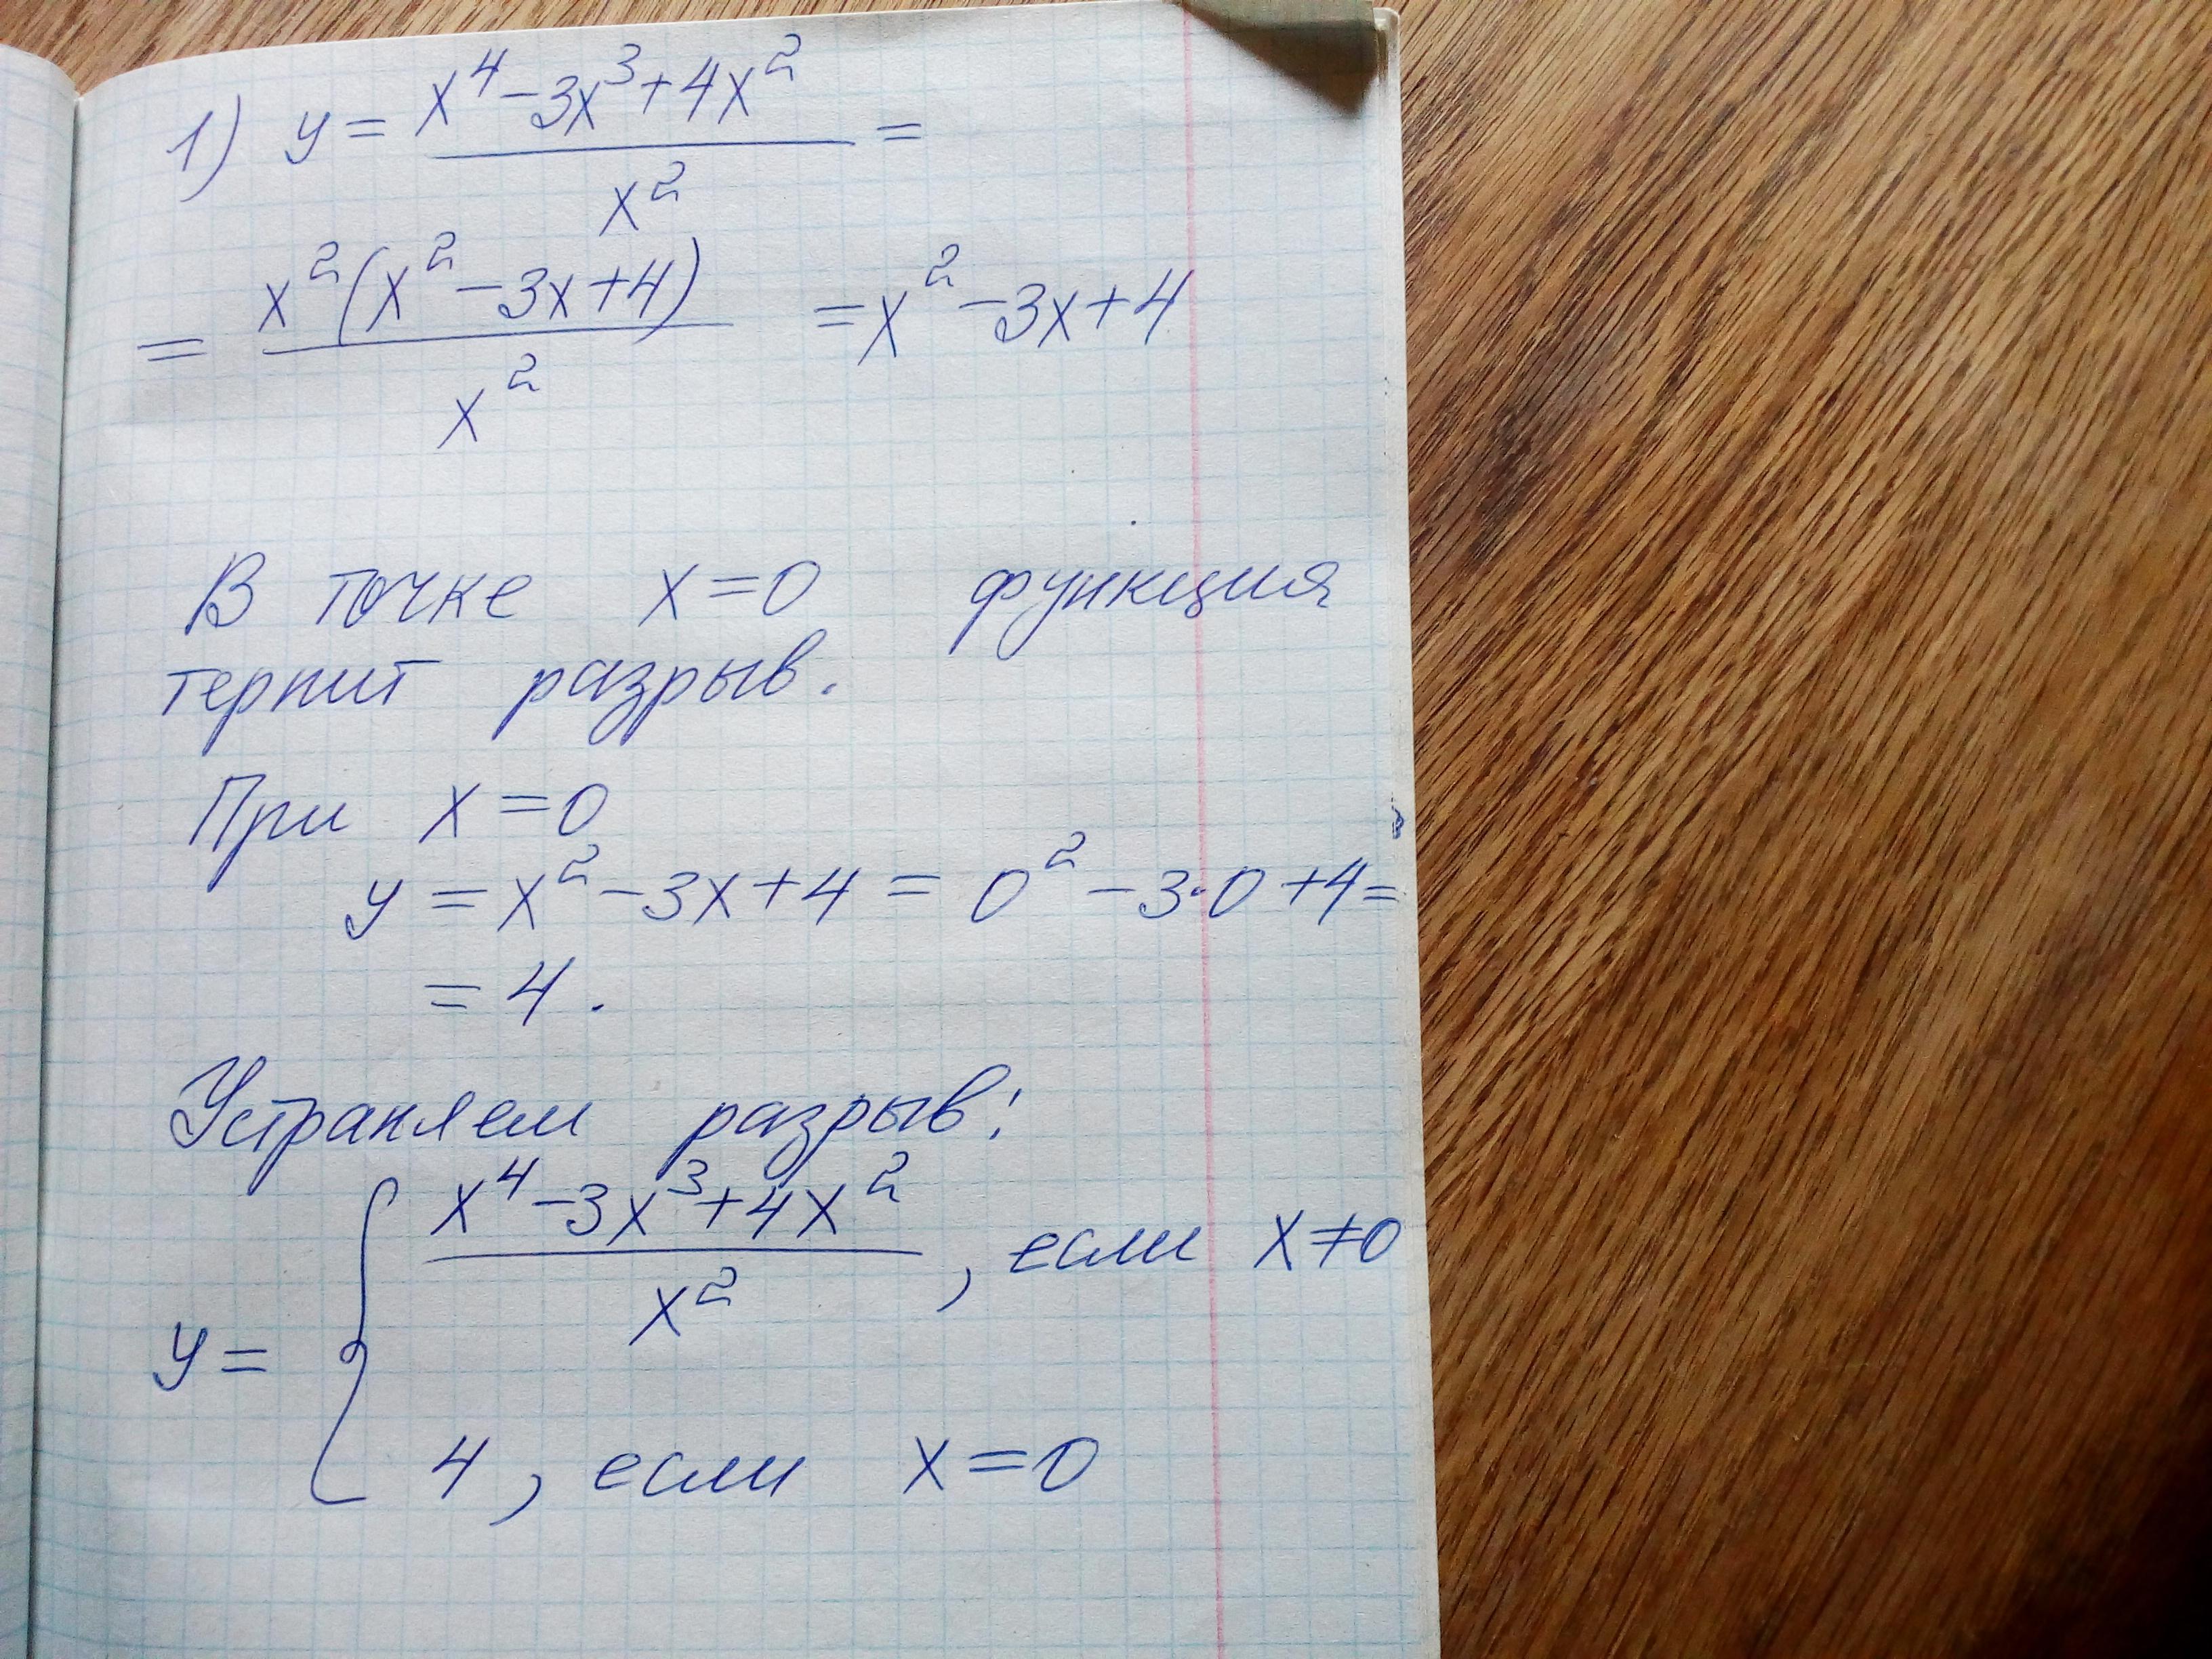 1) y = (x⁴ - 3x³ + 4x²) / x² =
= x²(x² - 3x + 4) / x² = x² - 3x + 4
В точке x = 0 функция
терпит разрыв.
При x = 0
y = x² - 3x + 4 = 0² - 3·0 + 4 =
= 4.
Устраняем разрыв:
y = { (x⁴ - 3x³ + 4x²) / x², если x ≠ 0
4, если x = 0